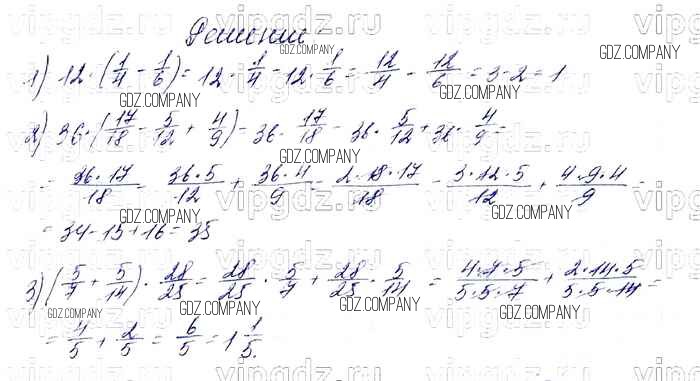 Решение
1) 12·(1/4 - 1/6) = 12·1/4 - 12·1/6 = 12/4 - 12/6 = 3-2 = 1
2) 36·(17/18 - 5/12 + 4/9) = 36·17/18 - 36·5/12 + 36·4/9 =
= 36·17/18 - 36·5/12 + 36·4/9 = 2·18·17/18 - 3·12·5/12 + 4·9·4/9 =
= 34-15+16 = 35
3) (5/7 + 5/14)·28/25 = 28/25·5/7 + 28/25·5/14 = 4·7·5/5·5·7 + 2·14·5/5·5·14 =
= 4/5 + 2/5 = 6/5 = 1 1/5.
GDZ.COMPANY
vipgdz.ru